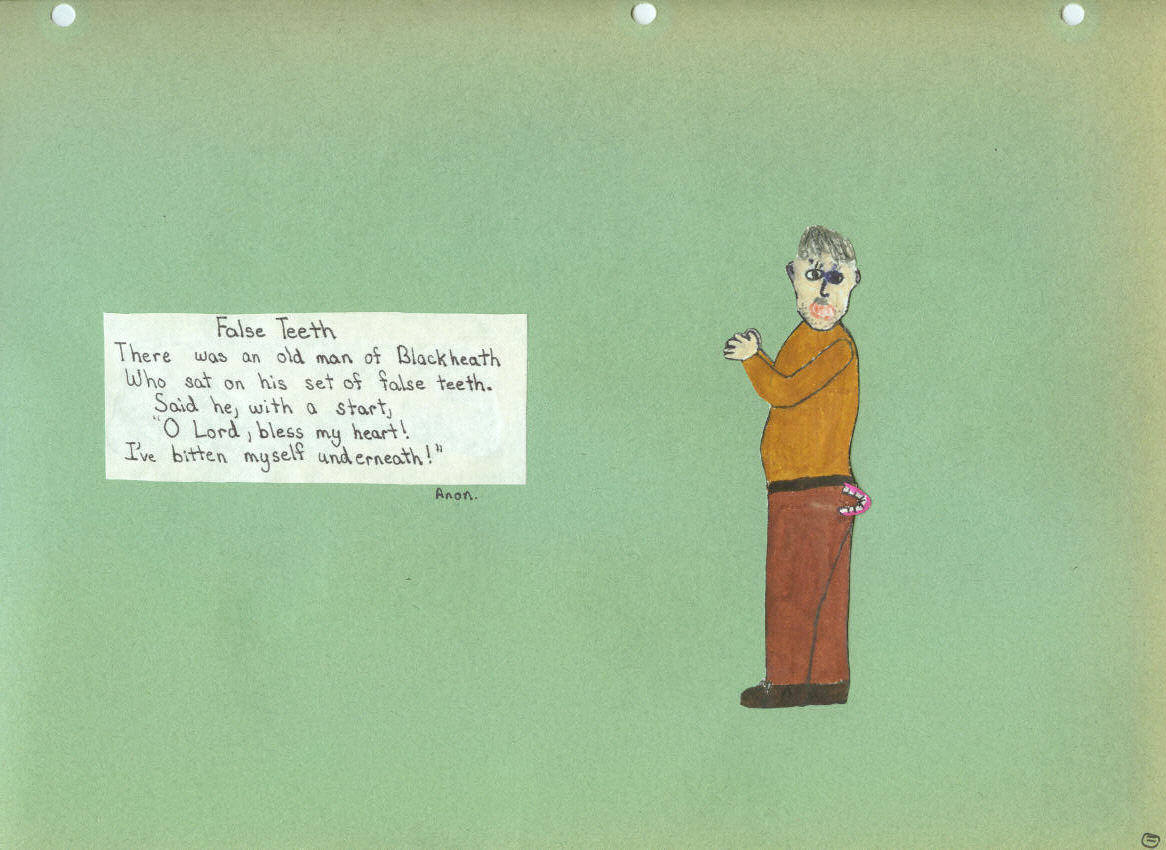 False Teeth
There was an old man of Blackheath
Who sat on his set of false teeth.
Said he, with a start,
"O Lord, bless my heart!
I've bitten myself underneath!"
Anon.
11